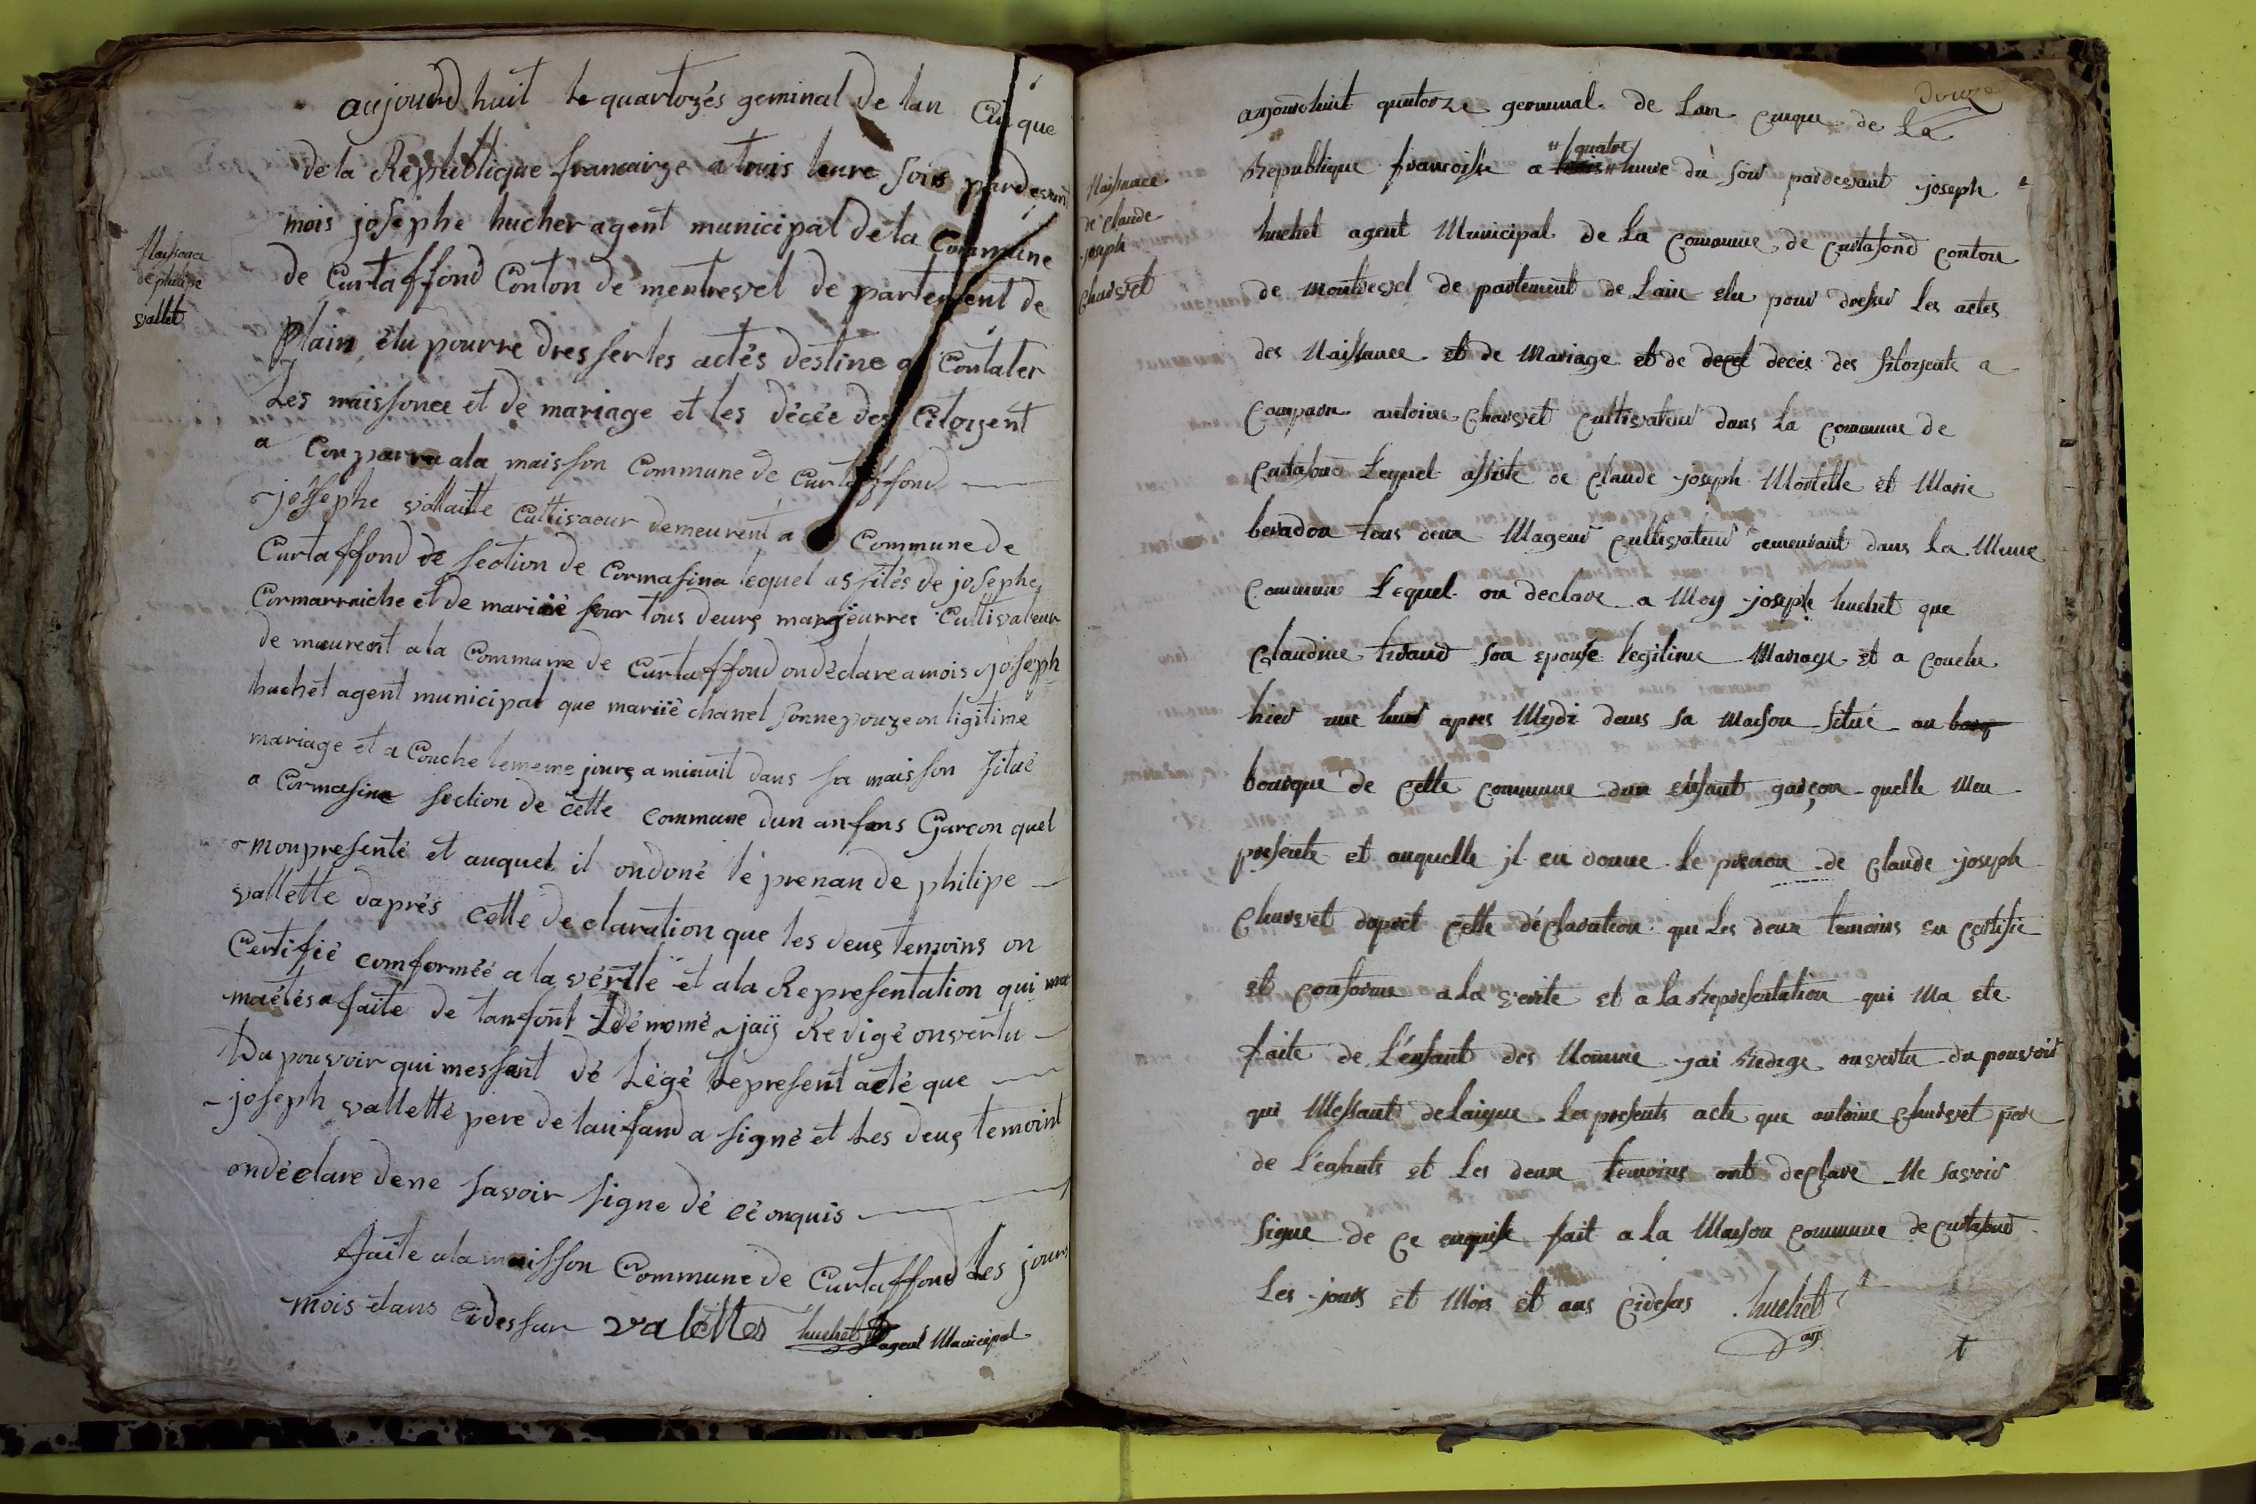 aujourdhuit le quartozés geminal de lan Cinque
de la Republicque francaize a trois heure soir pardevant
mois josephe huchet agent municipal de la Commune
de Curtaffond Conton de mentrevel de partement de
Plain élu pourre dresser les actés destine a Contater
Les naissonce et de mariage et les décée des Citoyent
a Conparru ala maisson Commune de Curtaffond
josephe vallaitte Cultivaeur demeurent a Commune de
Curtaffond de section de Cormasina lequel assités de josephe
Cormarraiche et de mariié tous deus marjeurres Cultivateur
de meurent ala Commune de Curtaffond on déclare a mois joseph
huchet agent municipal que mariié chanel sonnepouze on ligitime
mariage et a Couche lememe jours a minuit dans sa maisson Jitué
a Cormasine section de cette commune dun anfans Garcon quel
monpresenté et auquel il ondoné lé prenan de philipe
vallette daprés cette de claration que les deus temoins on
Certifié comforméé a la vérité et ala Representation qui ma
maétés faite de lanfont dénomé jaiy Redigé onvertu
Du pouvoir qui messant dé Légé Lepresent acté que
joseph vallette pere de lanfand a signé et Les deus temoint
ondéclare dene savoir signe dé cé onquis
faite ala maisson Commune de Curtaffond Les jours
mois etans cidessur valéttes huchet agent Municipal
Naissance
de philipe
vallet
douze
aujourdhuit quatorze germinal de Lan cinque de La
Republique francoisse a trois quatre heure du soir pardevant joseph
huchet agent Municipal de La Commune de Curtafond Conton
de montrevel de partement de Lain elu pour dresser Les actes
des Naissance et de Mariage et de deces des sitoyents a
Comparu antoine Charvet Cultivateur dans La Commune de
Curtafond Lequel assiste de Claude joseph Mortelle et Marie
beradon tous deux Mageur Cultivateur demeurant dans La Meme
Commune Lequel on declare a Moy joseph huchet que
Claudine son epouse legitime Mariage et a couche
hier une heur apres Mydi dans sa Maison situé au
bourque de cette commune dun enfant garçon quelle Men
presente et auquelle jl en donne Le prenon de Claude joseph
Charvet dapret cette déclaration que Les deux temoins en certifie
et conforme a La verite et a La Representation qui Ma ete
faite de L'enfant des Nommé jai Redige onvertu du pouvoir
qui Messant delaigue Les presents acte que antoine Charvet pere
de L'enfants et Les deux temoins ont declare Ne savoir
signe de ce enquise fait a La Maison Commune de Curtafond
Les jours et Mois et ans Cidesus huchet
ag
Naissance
de Claude
joseph
Charvet